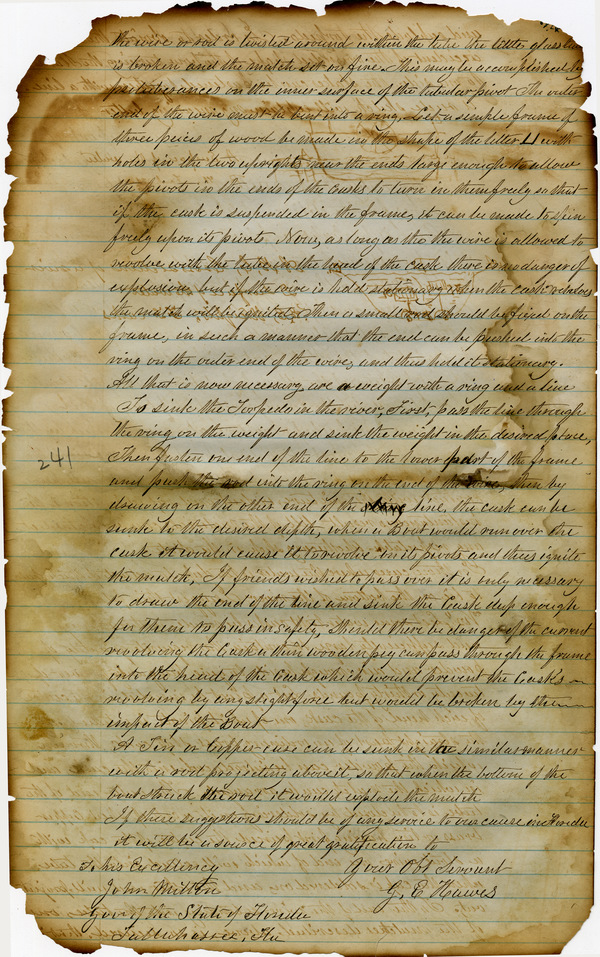 the wire or rod is twisted around within the tube the little glass
is broken and the match set on fire. This may be accomplished by
protuberances on the inner surface of the tubular pivot The outer
end of the wire must be bent into a ring, Let a simple frame of
three peices of wood be made in the shape of the letter ⊔ with
holes in the two uprights near the ends large enough to allow
the pivots in the ends of the casks to turn in them freely so that
if the cask is suspended in the frame, it can be made to spin
freely upon its pivots Now, as long as the the wire is allowed to
revolve with the tube in the head of the cask there is no danger of
explosion, but if the wire is held stationary when the cask revolves
the match will be ignited. Then a small rod should be fixed on the
frame, in such a manner that the end can be pushed into the
ring on the outer end of the wire, and thus hold it stationary.
All that is now necessary, are a weight with a ring and a line
To sink the Torpedo in the river, First, pass the line through
the ring on the weight and sink the weight in the desired place,
241
Then fasten one end of the line to the lower part of the frame
and push the rod into the ring on the end of the wire, then by
drawing on the other end of the line, the cask can be
sunk to the desired depth, when a Boat would run over the
cask it would cause it to revolve on its pivots and thus ignite
the match, If friends wished to pass over it is only necessary
to draw the end of the line and sink the Cask deep enough
for them to pass in safety, Should there be danger of the current
revolving the Cask a thin wooden peg can pass through the frame
into the head of the Cask which would prevent the Cask's
revolving by any slight force but would be broken by the
impact of the Boat
A Tin or Copper case can be sunk in the similar manner
with a rod projecting above it, so that when the bottom of the
boat struck the rod it would explode the match
If these suggestions should be of any service to our cause in Florida
it will be a source of great gratification to
To his Excellency Your Obt Servant
John Milton G. E. Hawes
Gov of the State of Florida
Tallahassee, Fla